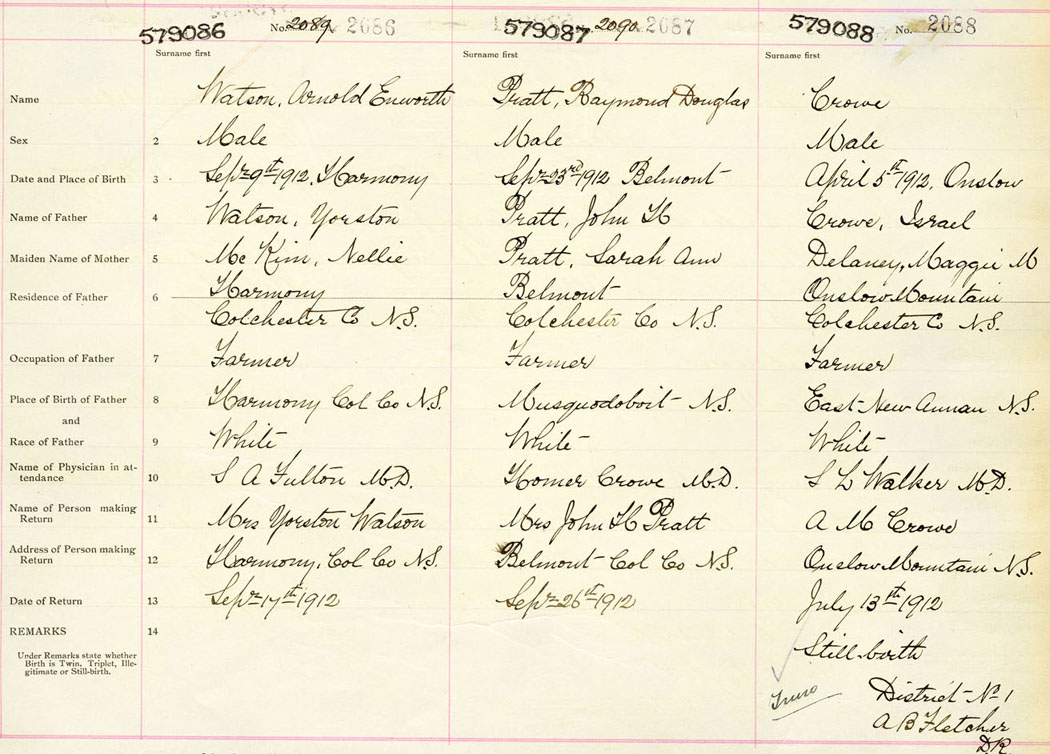 579086 No. 2089 2086 579087 2090 2087 579088 No. 2088
Surname first Surname first Surname first
Name Watson, Arnold Pratt, Raymond Douglas Crowe
Sex 2 Male Male Male
Date and Place of Birth 3 Sept 9th 1912, Harmony Sept 23rd 1912 Belmont April 5th 1912, Onslow
Name of Father 4 Watson, Yorston Pratt, John H Crowe, Israel
Maiden Name of Mother 5 Mc Kim, Nellie Pratt, Sarah Ann Delaney, Maggie M
Residence of Father 6 Harmony Belmont Onslow Mountain
Colchester Co N.S. Colchester Co N.S. Colchester Co N.S.
Occupation of Father 7 Farmer Farmer Farmer
Place of Birth of Father 8 Harmony Col Co N.S. Musquodoboit N.S. East New Annan N.S.
and
Race of Father 9 White White White
Name of Physician in at-
tendance 10 S A Fulton M.D. Homer Crowe M.D. S L Walker M.D.
Name of Person making
Return 11 Mrs Yorston Watson Mrs John H Pratt A M Crowe
Address of Person making
Return 12 Harmony, Col Co N.S. Belmont Col Co N.S. Onslow Mountain N.S.
Date of Return 13 Sept 17th 1912 Sept 26th 1912 July 13th 1912
REMARKS 14
Under Remarks state whether
Birth is Twin, Triplet, Ille-
gitimate or Still-birth.
Still-birth
Truro District No 1
A B Fletcher
D.R.